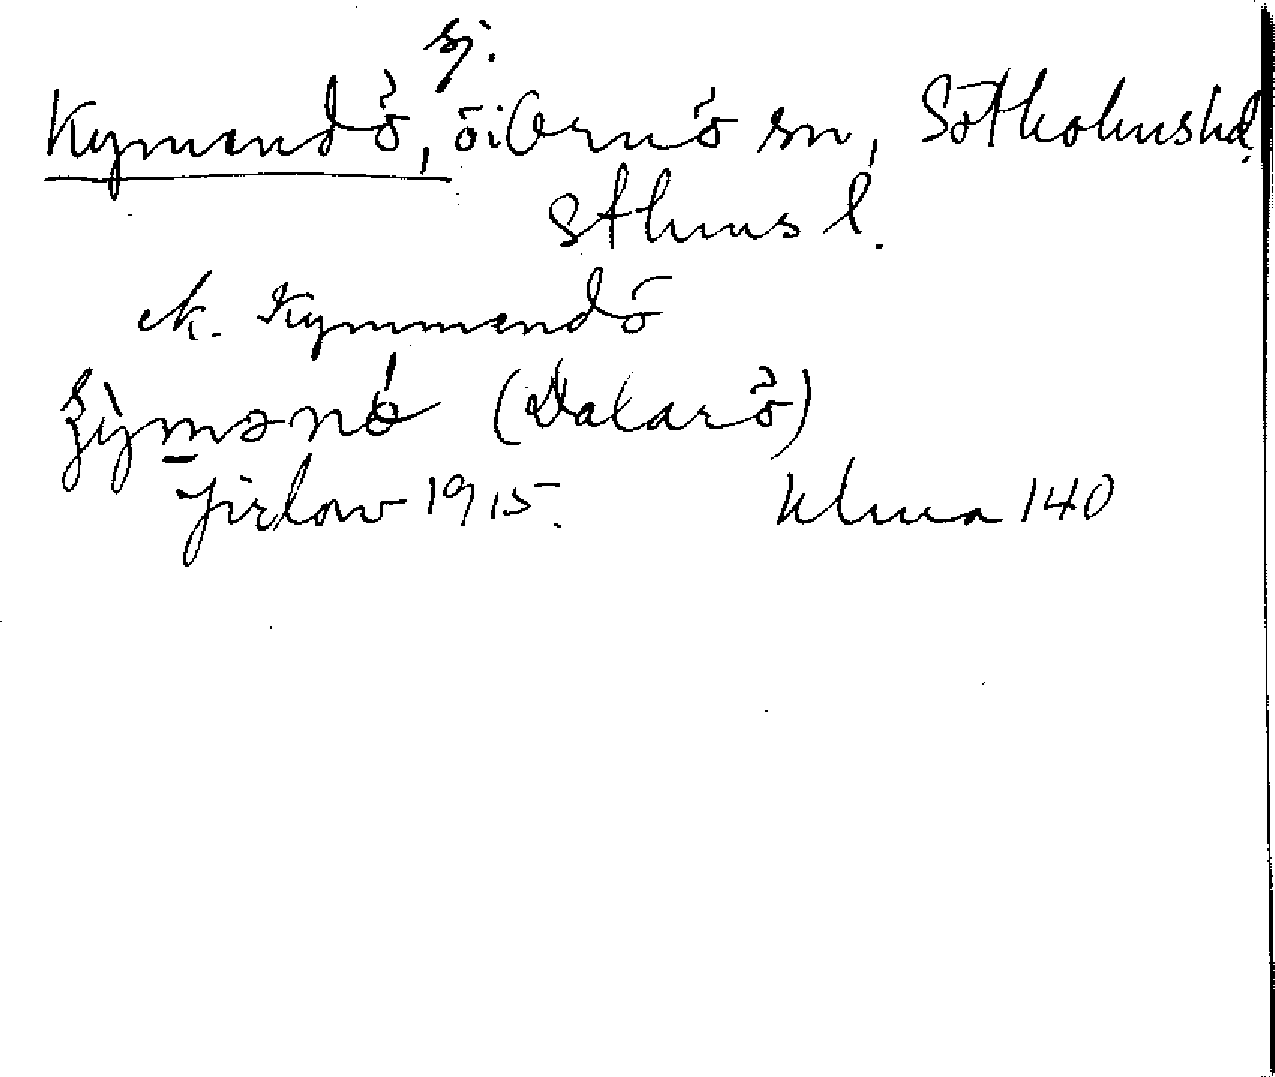 sj.
Kymendö, ö i Ornö sn, Sotholms hd.
Sthms l.
ek. Kymmendö
(Dalarö)
Jirlow 1915. Ulma 140